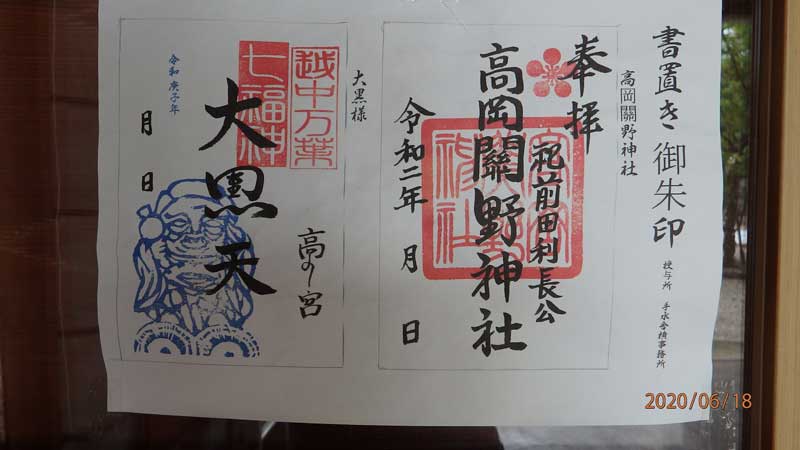 書置き 御朱印
授与所 手水舎横事務所
高岡關野神社
奉拝
祝前田利長公
高岡關野神社
令和二年 月 日
大黒様
越中万葉
七福神
高の宮
大黒天
令和庚子年
月 日
2020/06/18